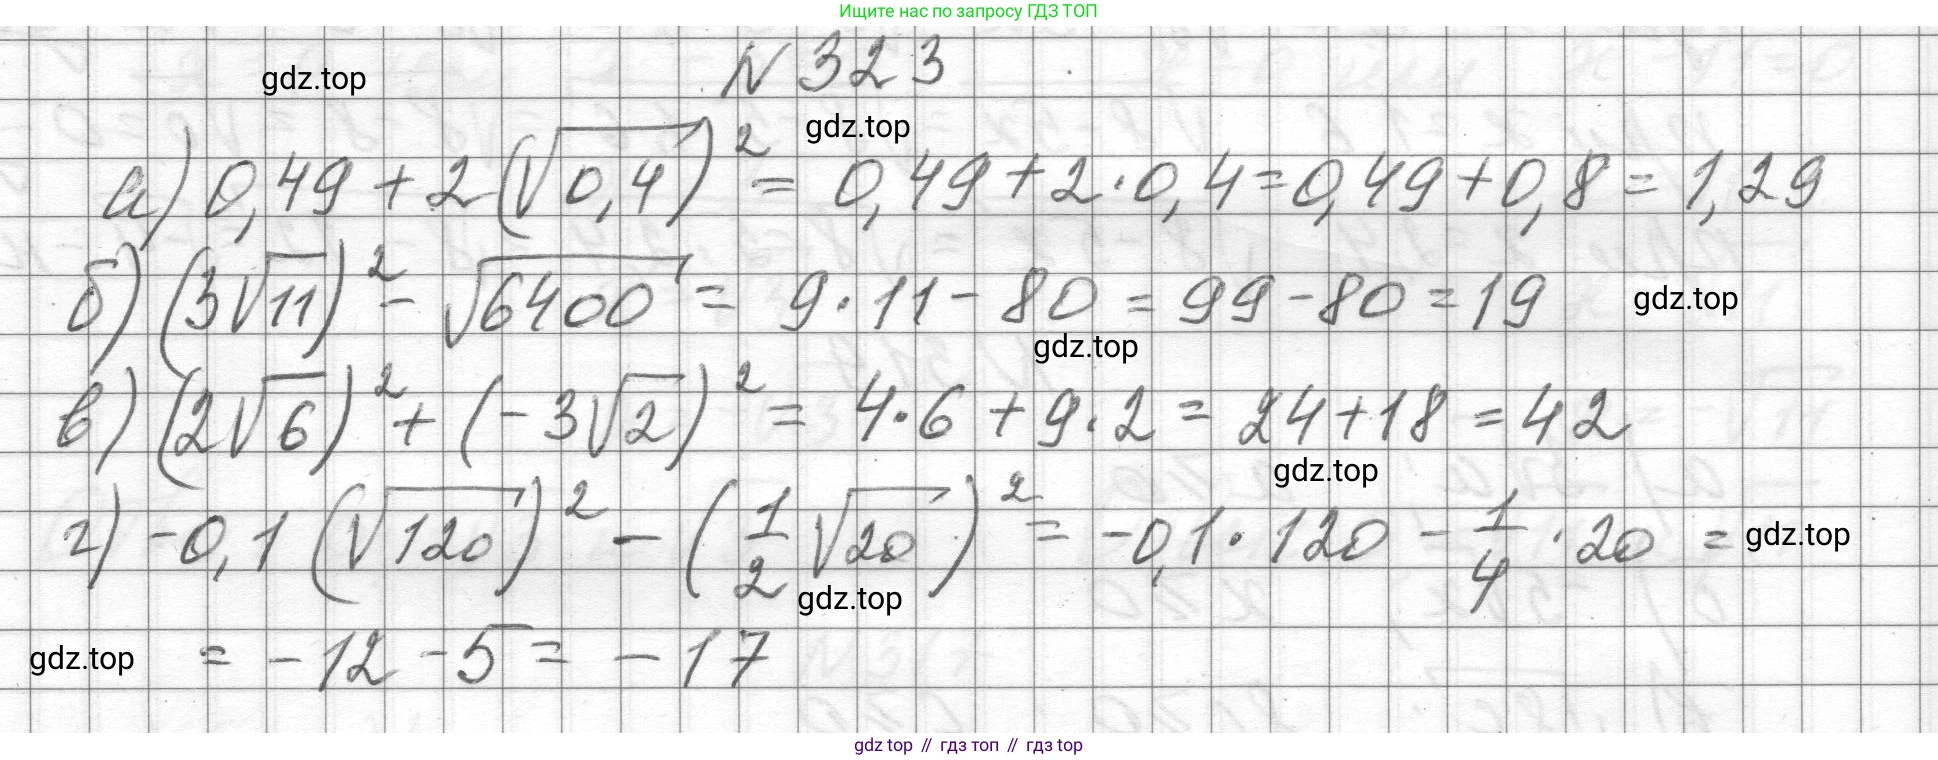 Ищите нас по запросу ГДЗ ТОП
N 323
gdz.top
gdz.top
а) 0,49 + 2(√0,4)² = 0,49 + 2·0,4 = 0,49 + 0,8 = 1,29
б) (3√11)² - √6400 = 9·11 - 80 = 99 - 80 = 19
gdz.top
gdz.top
в) (2√6)² + (-3√2)² = 4·6 + 9·2 = 24 + 18 = 42
gdz.top
г) -0,1(√120)² - (1/2√20)² = -0,1·120 - 1/4·20 =
gdz.top
gdz.top
gdz.top
= -12 - 5 = -17
gdz top // гдз топ // гдз top